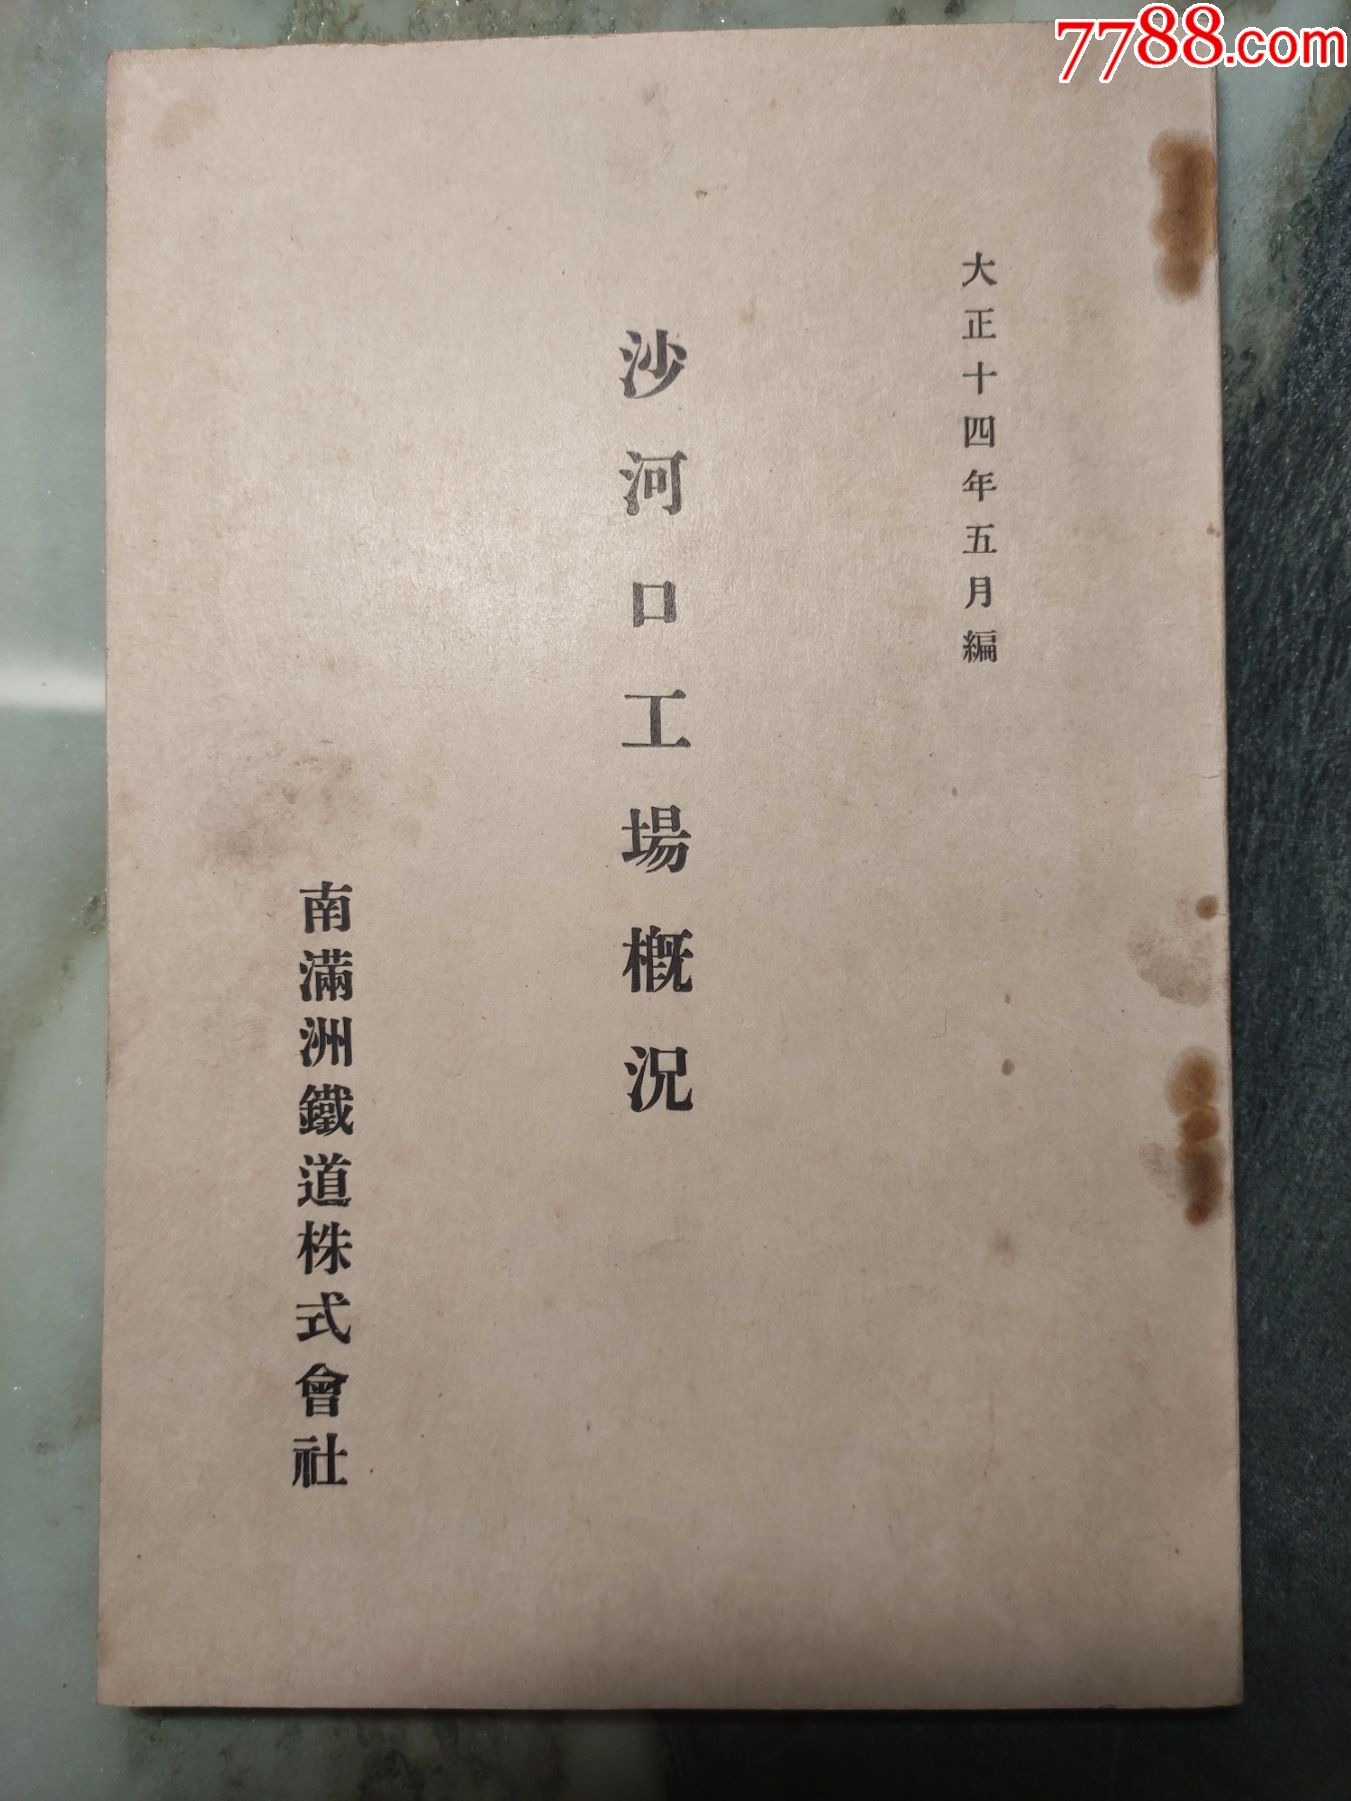 7788.com
大正十四年五月編
沙河口工場概況
南滿洲鐵道株式會社